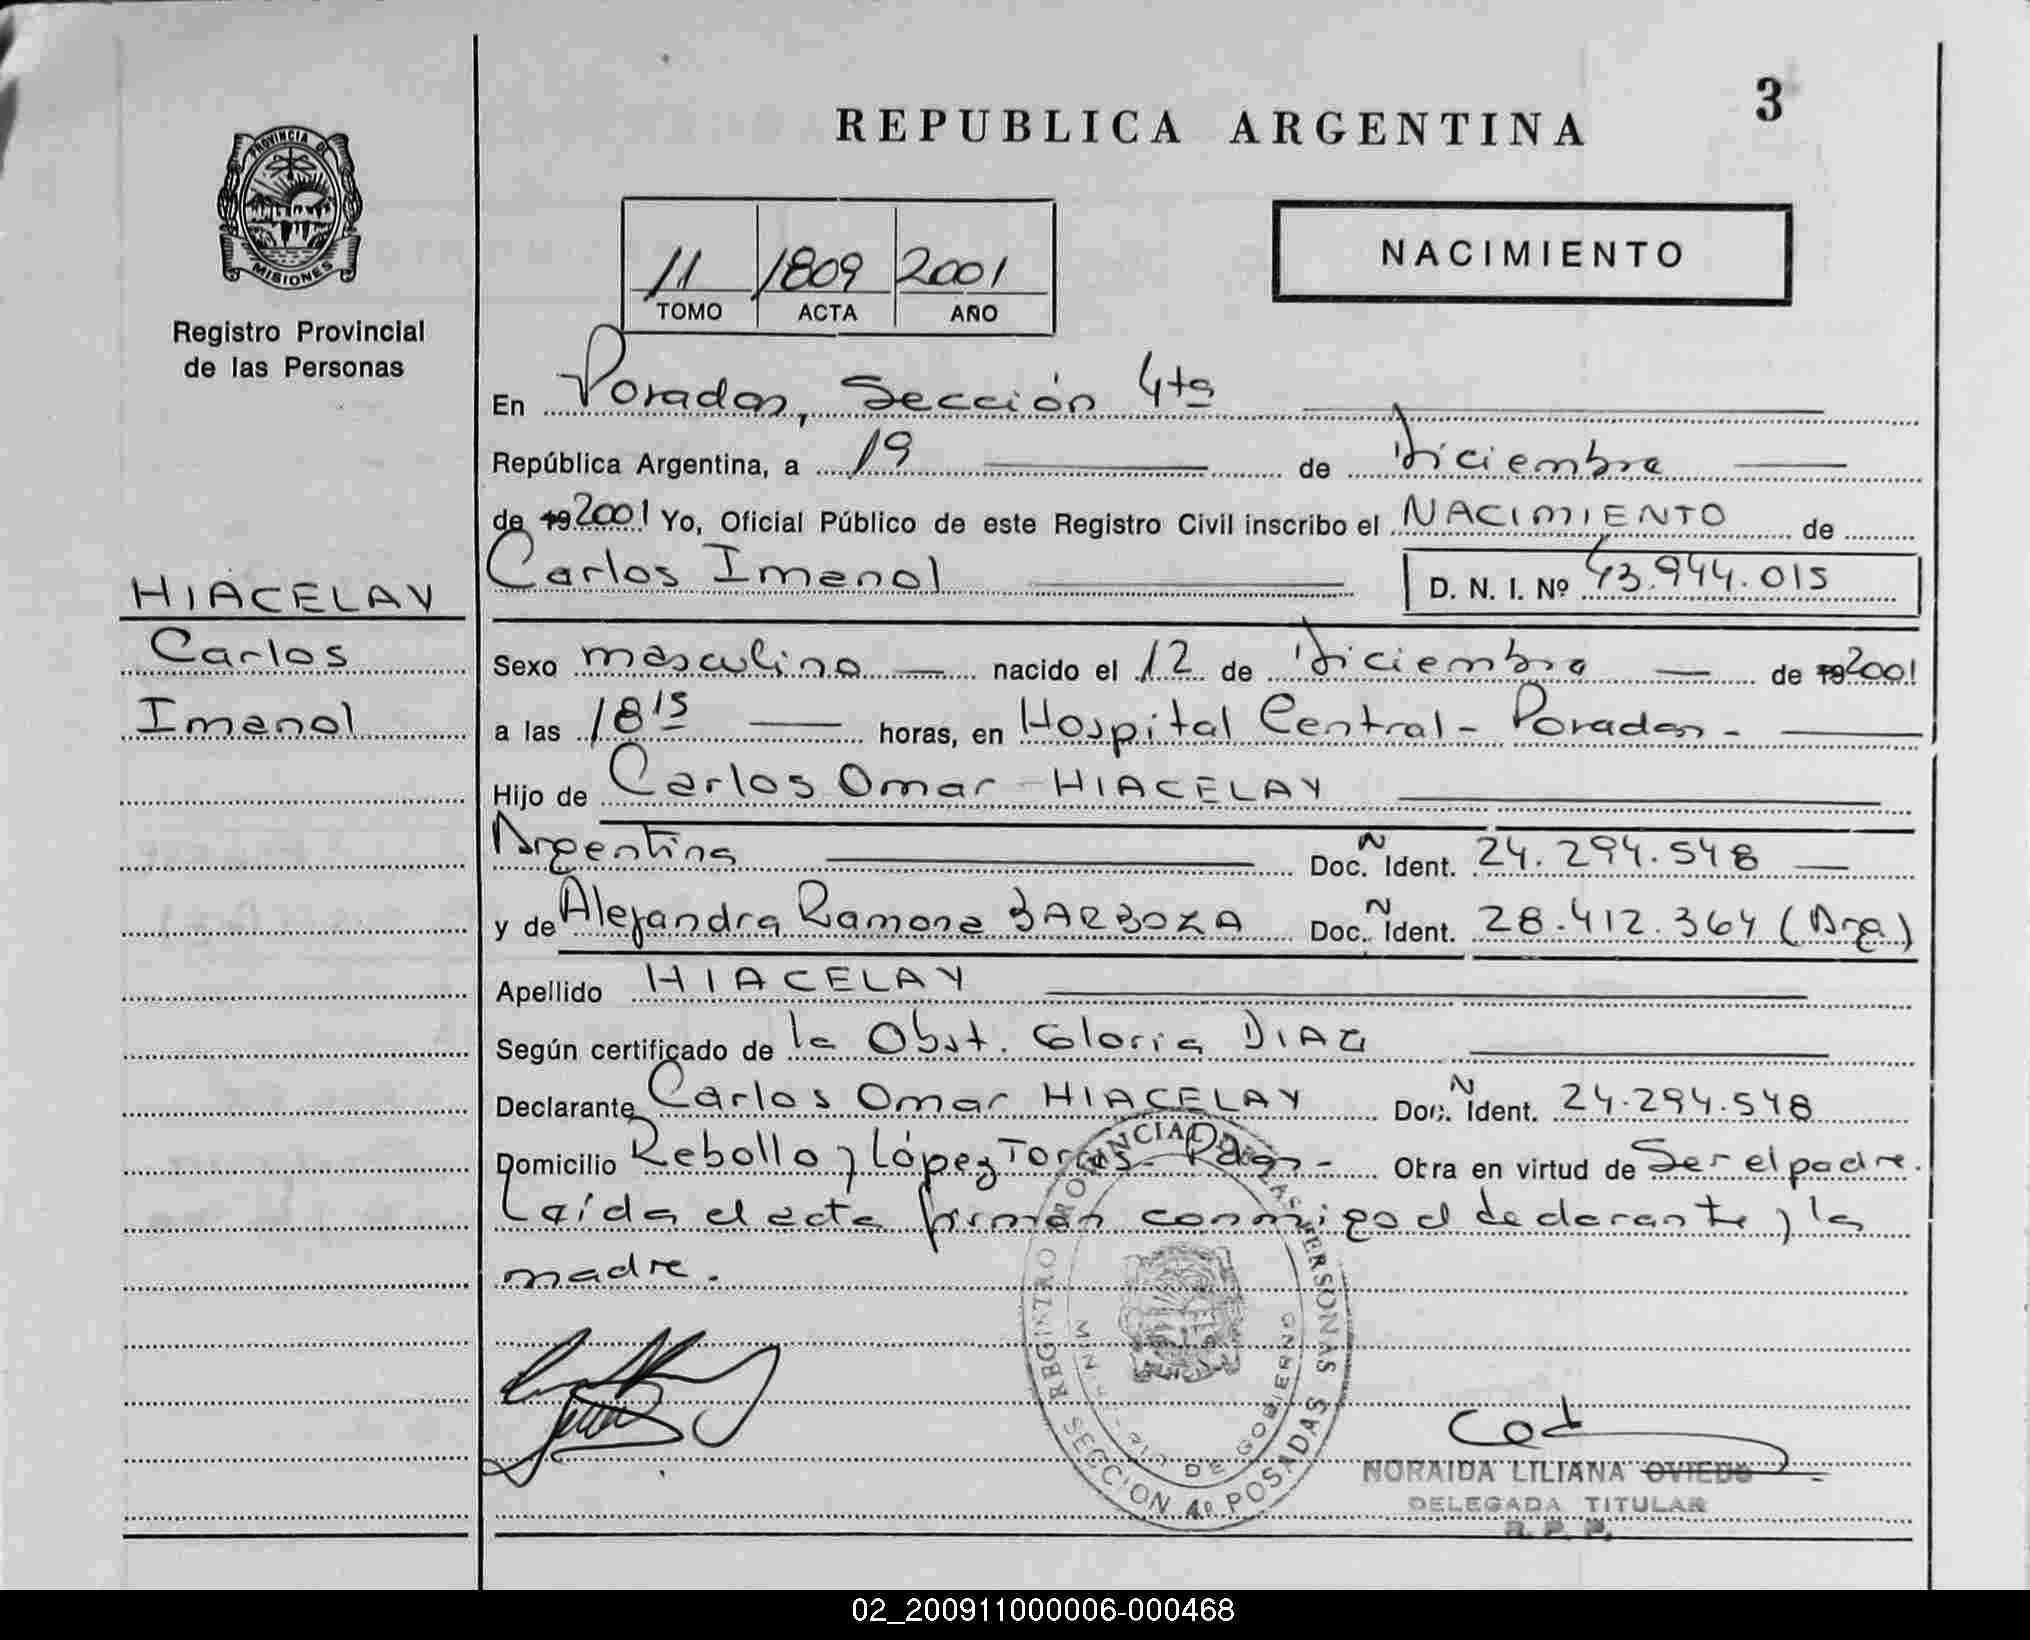 3
REPUBLICA ARGENTINA
PROVINCIA DE
MISIONES
Registro Provincial
de las Personas
NACIMIENTO
11 1809 2001
TOMO ACTA AÑO
En Posadas, Sección 4ta
República Argentina, a 19 de Diciembre
de 19 2001 Yo, Oficial Público de este Registro Civil inscribo el NACIMIENTO de
Carlos Imanol D. N. I. Nº 43.944.015
HIACELAY
Carlos
Imanol
Sexo masculino nacido el 12 de Diciembre de 19 2001
a las 18 15 horas, en Hospital Central - Posadas -
Hijo de Carlos Omar HIACELAY
Argentina Doc. N Ident. 24.294.548
y de Alejandra Ramona BARBOZA Doc. N Ident. 28.412.364 (Arg)
Apellido HIACELAY
Según certificado de la Obst. Gloria DIAZ
Declarante Carlos Omar HIACELAY Doc. N Ident. 24.294.548
Domicilio Rebollo y López Torres - Pdas - Obra en virtud de Ser el padre.
Leída el acta firman conmigo el declarante y la
madre.
REGISTRO PROVINCIAL DE LAS PERSONAS
MINISTERIO DE GOBIERNO
SECCION 4º POSADAS
NORAIDA LILIANA OVIEDO
DELEGADA TITULAR
R. P. P.
02_200911000006-000468